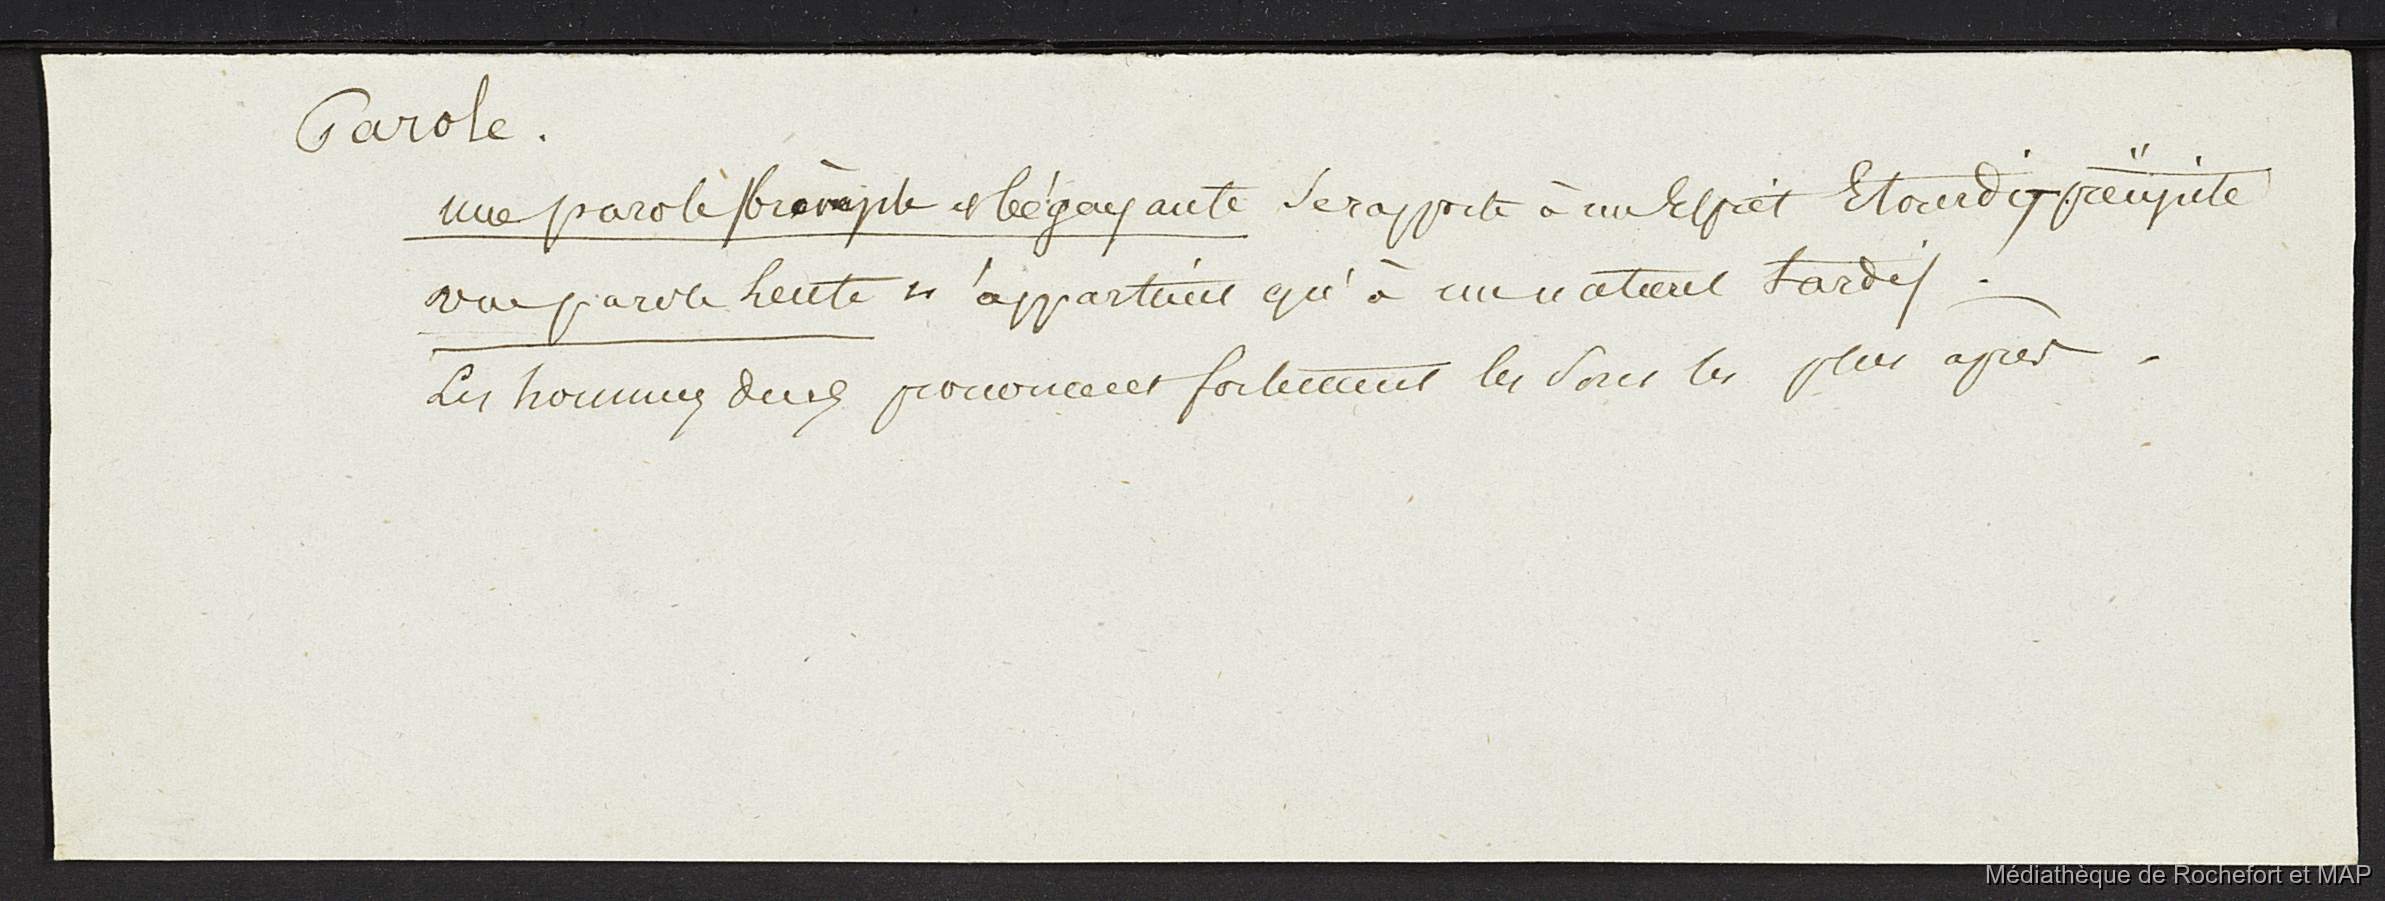 Parole.
une parole prompte et bégayante se rapporte à un Esprit Etourdi
une parole lente n'appartient qu'à un naturel tardif.
Les hommes durs prononcent fortement les sons les plus apres.
Médiathèque de Rochefort et MAP